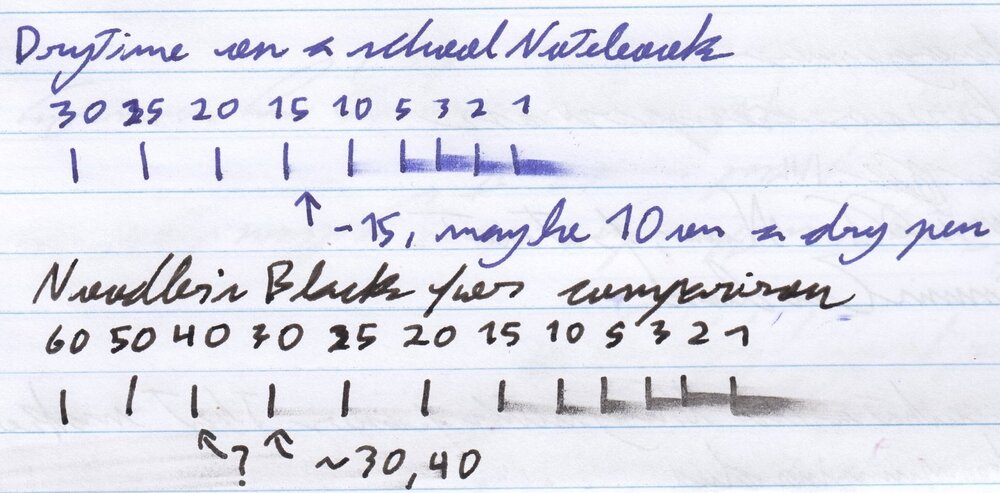 Drytime on a school Notebook
30 25 20 15 10 5 3 2 1
~15, maybe 10 on a dry pen
Noodler's Black for comparison
60 50 40 30 25 20 15 10 5 3 2 1
? ~30,40